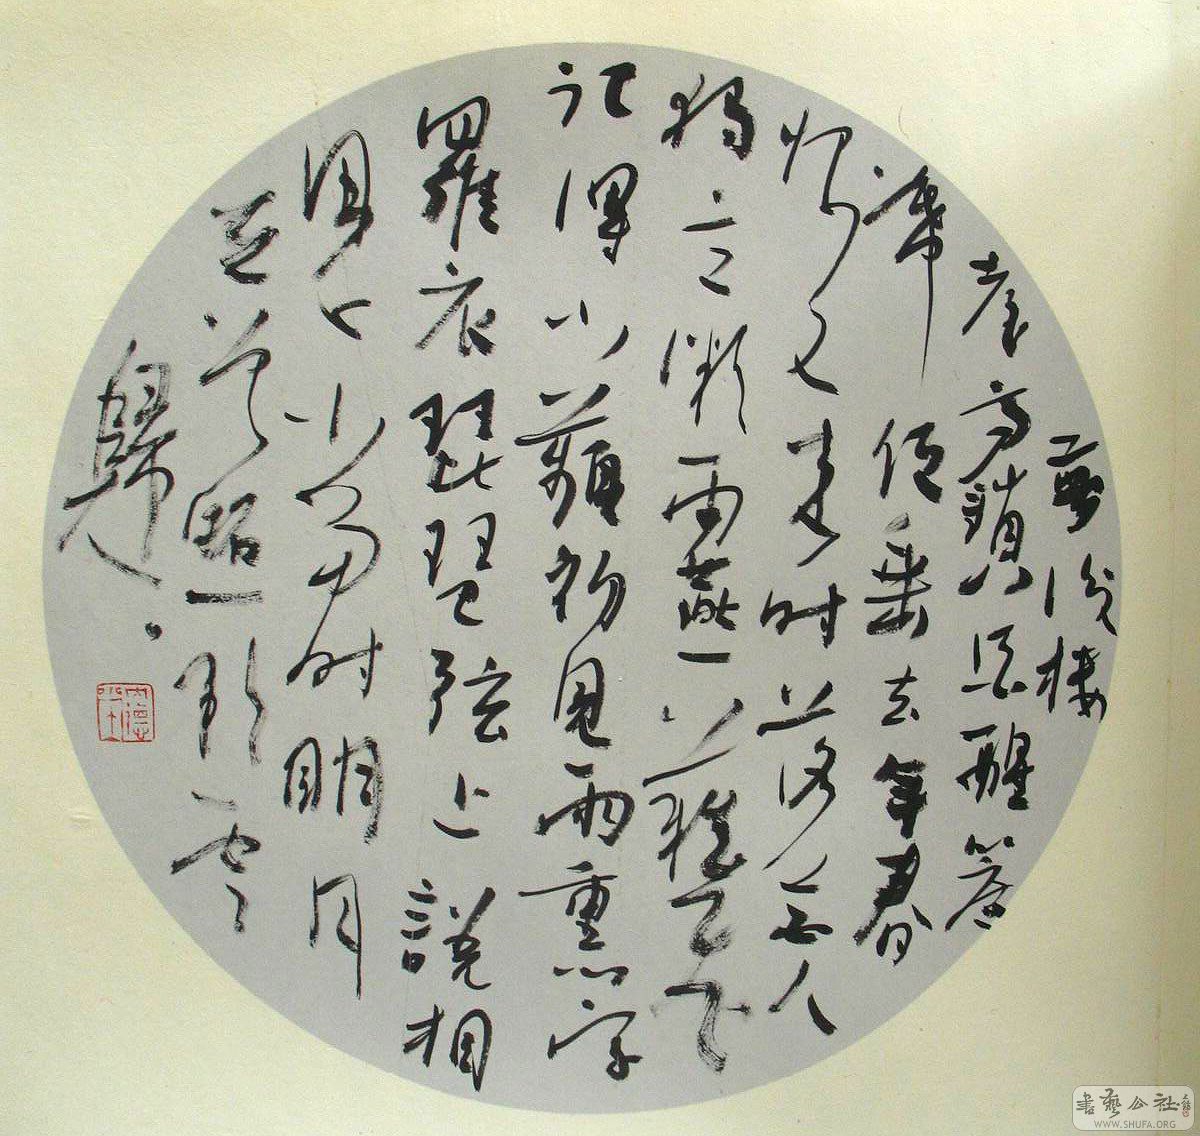 夢後樓
臺高鎖酒醒簾
幕低垂去年春
恨却来时落花人
獨立微雨燕雙飛
記得小蘋初見兩重心字
羅衣琵琶弦上說相
思當时明月
在曾照彩雲
歸
書藝公社
WWW.SHUFA.ORG